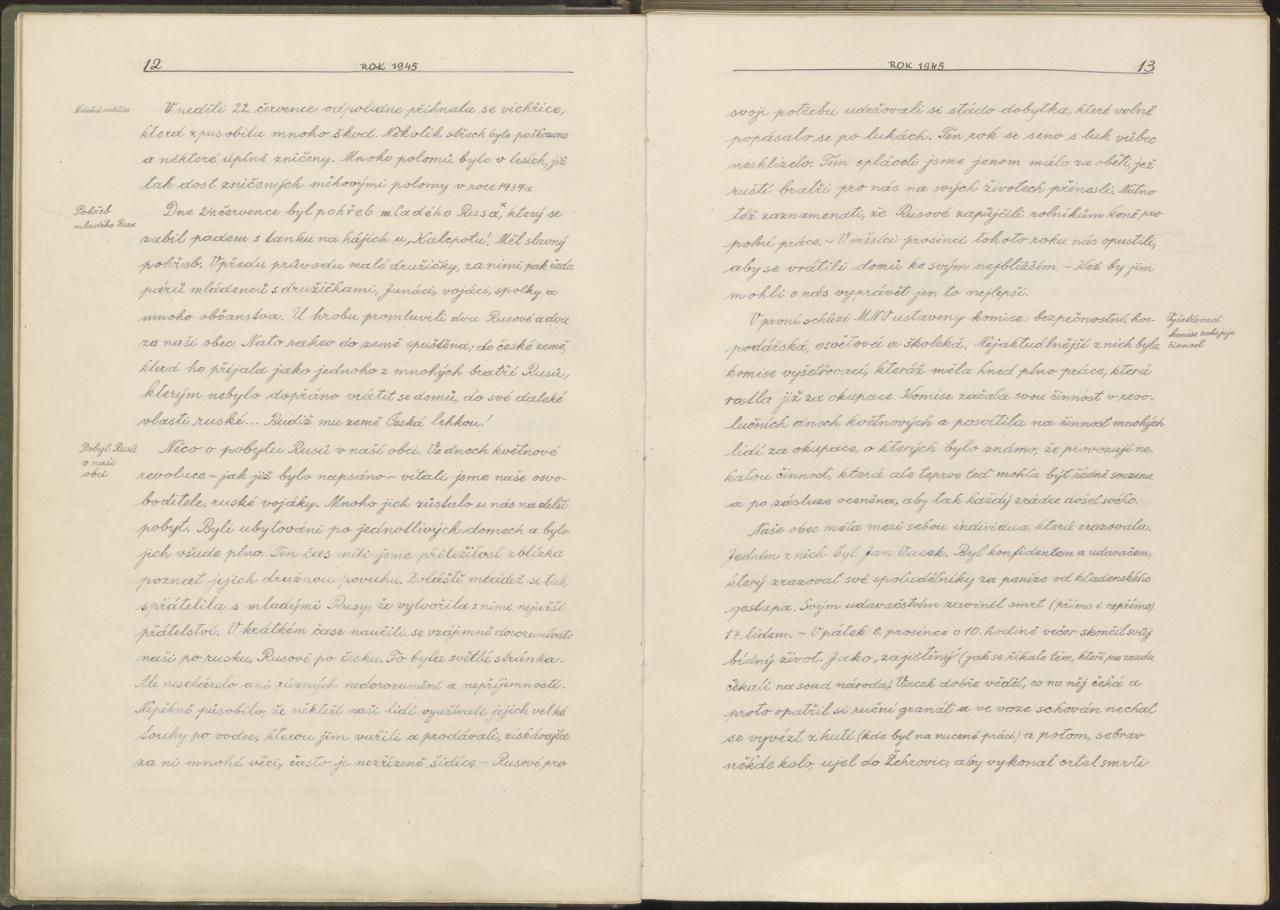 12
ROK 1945
Ničivá vichřice
V neděli 22. července odpoledne přihnala se vichřice,
která způsobila mnoho škod. Několik střech bylo poškozeno
a některé úplně zničeny. Mnoho polomů bylo v lesích, již
tak dost zničených sněhovými polomy v roce 1939a
Pohřeb
mladého Rusa
Dne 24. července byl pohřeb mladého Rusa,ˣ který se
zabil pádem s tanku na hájích u „Kalepotu“. Měl slavný
pohřeb. Vpředu průvodu malé družičky, za nimi pak řada
párů mládenců s družičkami, Junáci, vojáci, spolky a
mnoho občanstva. U hrobu promluvili dva Rusové a dva
za naši obec. Nato rakev do země spuštěna; do české země,
která ho přijala jako jednoho z mnohých bratří Rusů,
kterým nebylo dopřáno vrátit se domů, do své daleké
vlasti ruské... Budiž mu země Česká lehkou!
Pobyt Rusů
v naší
obci
Něco o pobytu Rusů v naší obci. Ve dnech květnové
revoluce – jak již bylo napsáno – vítali jsme naše osvo-
boditele, ruské vojáky. Mnoho jich zůstalo u nás na delší
pobyt. Byli ubytováni po jednotlivých domech a bylo
jich všude plno. Ten čas měli jsme příležitost zblízka
poznat jejich družnou povahu. Zvláště mládež se tak
spřátelila s mladými Rusy, že vytvořila s nimi nejužší
přátelství. V krátkém čase naučili se vzájemně dorozumívati
naši po rusku, Rusové po česku. To byla světlá stránka.
Ale nescházelo ani různých nedorozumění a nepříjemností.
Nepěkně působilo, že někteří naši lidí využívali jejich velké
touhy po vodce, kterou jim vařili a prodávali, získávajíce
za ni mnohé věci, často je nezřízeně šidíce – Rusové pro
ROK 1945
13
svoji potřebu udržovali si stádo dobytka, které volně
popásalo se po lukách. Ten rok se seno s luk vůbec
nesklízelo. Tím spláceli jsme jenom málo za oběti, jež
ruští bratři pro nás na svých životech přinesli. Nutno
též zaznamenati, že Rusové zapůjčili rolníkům koně pro
polní práce. – V měsíci prosinci tohoto roku nás opustili,
aby se vrátili domů ke svým nejbližším. – Kéž by jim
mohli o nás vyprávět jen to nejlepší.
Vyšetřovací
komise zahajuje
činnost
V první schůzi MNV ustaveny komise: bezpečnostní, hos-
podářská, osvětová a školská. Nejaktuálnější z nich byla
komise vyšetřovací, kteráž měla hned plno práce, která
rostla již za okupace. Komise začala svou činnost v revo-
lučních dnech květnových a posvítila na činnost mnohých
lidí za okupace, o kterých bylo známo, že provozují ne-
kalou činnost, která ale teprve teď mohla být řádně souzena
a po zásluze oceněna, aby tak každý zrádce došel svého.
Naše obec měla mezi sebou individua, která zrazovala.
Jedním z nich byl Jan Vacek. Byl konfidentem a udavačem,
který zrazoval své spoludělníky za peníze od kladenského
gestapa. Svým udavačstvím zavinil smrt (přímo i nepřímo)
17 lidem. – V pátek 8. prosince o 10. hodině večer skončil svůj
bídný život. Jako „zajištěný“ (jak se říkalo těm, kteří pro zradu
čekali na soud národa) Vacek dobře věděl, co na něj čeká a
proto opatřil si ruční granát a ve voze schován nechal
se vyvézt z hutí (kde byl na nucené práci) a potom, sebrav
někde kolo, ujel do Žehrovic, aby vykonal ortel smrti